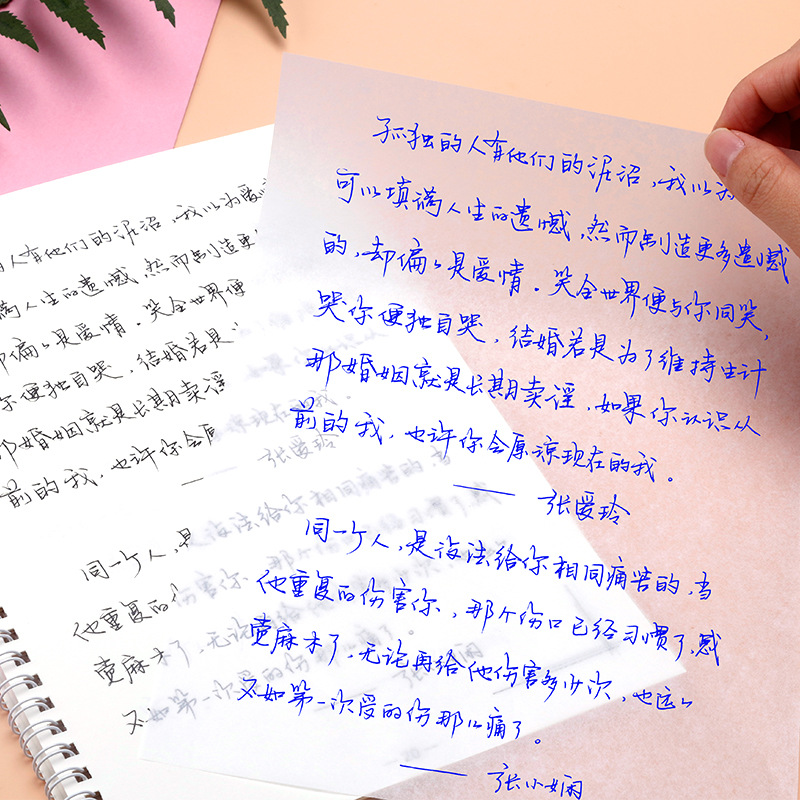 孤独的人有他们的泥沼，我以为
可以填满人生的遗憾，然而制造更多遗憾
的，却偏々是爱情。笑全世界便与你同笑，
哭你便独自哭，结婚若是为了维持生计
那婚姻就是长期卖淫，如果你认识从
前的我，也许你会原谅现在的我。
—— 张爱玲
同一个人，是没法给你相同痛苦的，当
他重复的伤害你，那个伤口已经习惯了，感
觉麻木了，无论再给他伤害多少次，也远々
不如第一次受的伤那么痛了。
—— 张小娴
的人有他们的泥沼，我以为爱
满人生的遗憾，然而制造更
却偏々是爱情。笑全世界便
你便独自哭，结婚若是
那婚姻就是长期卖淫
前的我，也许你会原
张爱玲
同一个人，是没法给你相同痛苦的，当
他重复的伤害你，那个伤口已经习惯了，感
觉麻木了，无论
不如第一次受的伤